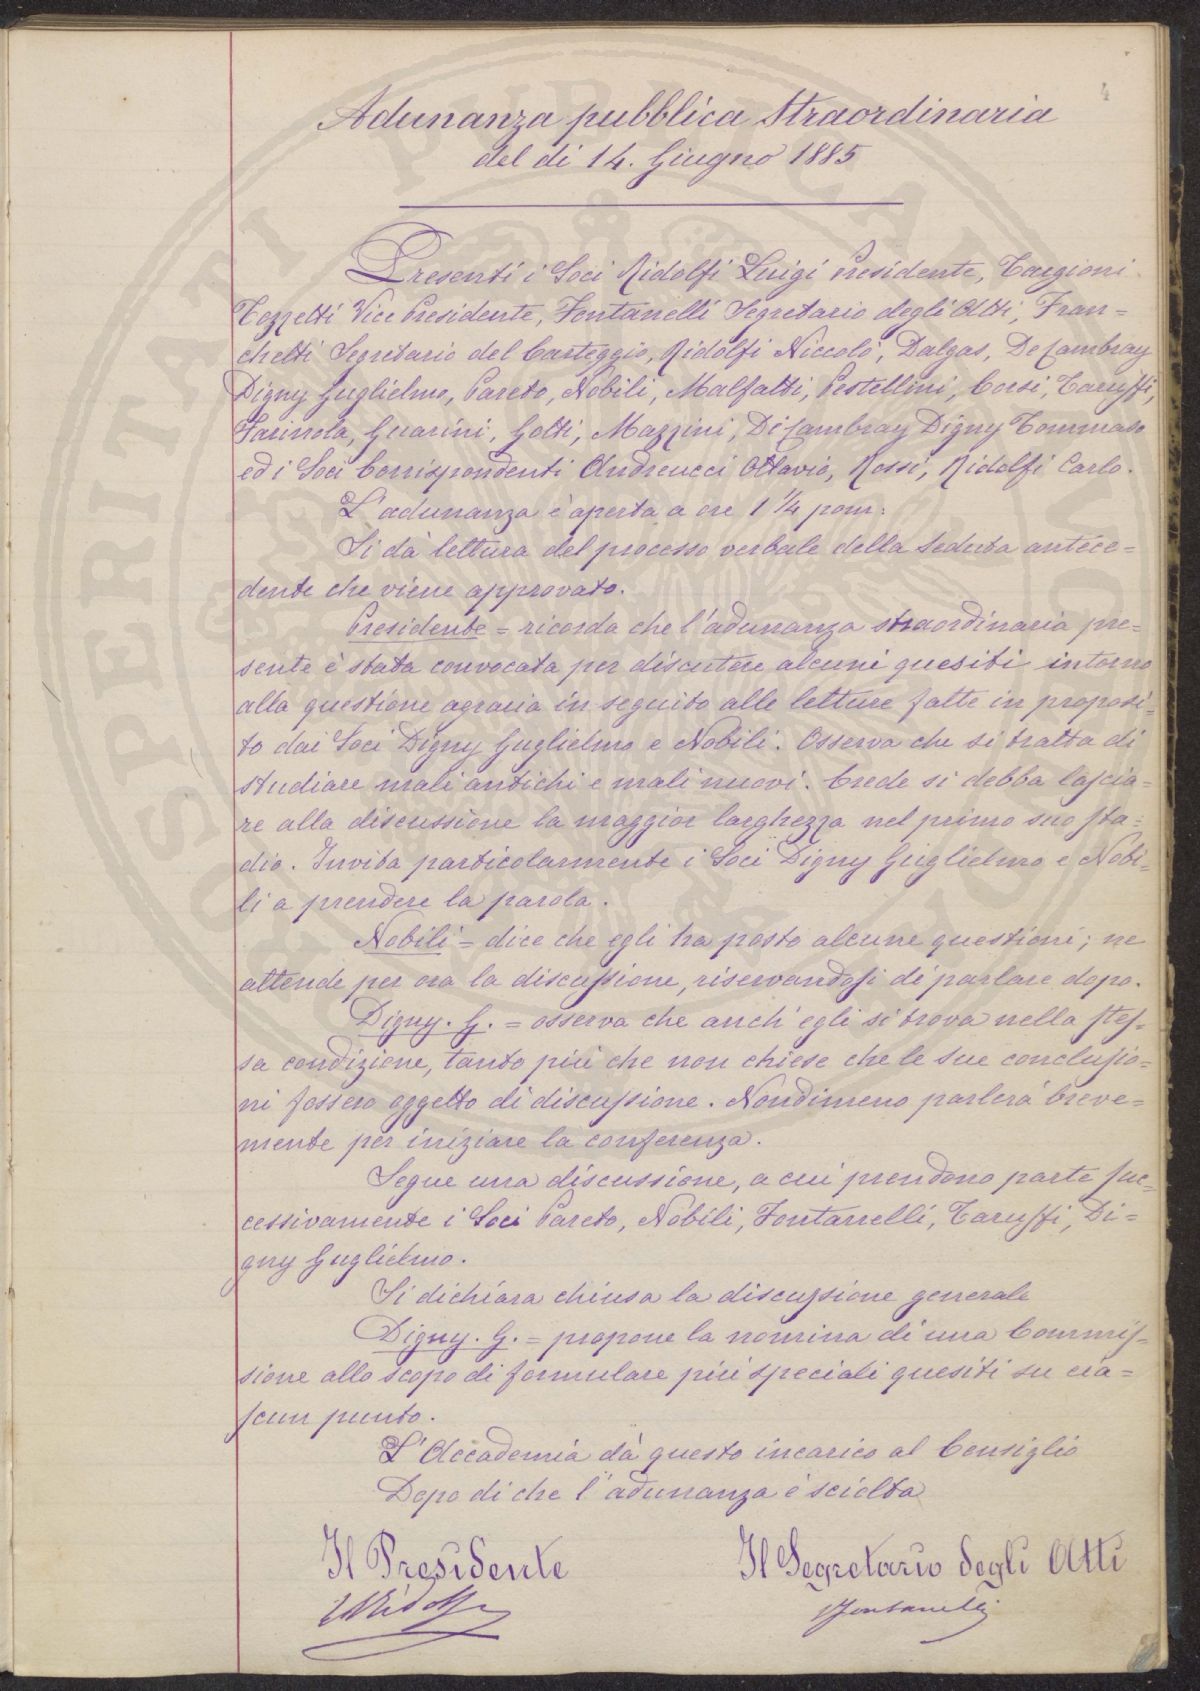 4
Adunanza pubblica Straordinaria
del di 14. Giugno 1885
Presenti i Soci Ridolfi Luigi Presidente, Targioni
Tozzetti Vice Presidente, Fontanelli Segretario degli Atti, Fran=
chetti Segretario del Carteggio, Ridolfi Niccolò, Dalgas, De Cambray
Digny Guglielmo, Pareto, Nobili, Malfatti, Pestellini, Corsi, Taruffi,
Farinola, Guarini, Gotti, Mazzini, Di Cambray Digny Tommaso
ed i Soci Corrispondenti Andreucci Ottavio, Rossi, Ridolfi Carlo.
L'adunanza è aperta a ore 1 1/4 pom:
Si dà lettura del processo verbale della seduta antece=
dente che viene approvato.
Presidente = ricorda che l'adunanza straordinaria pre=
sente è stata convocata per discutere alcuni quesiti intorno
alla questione agraria in seguito alle letture fatte in proposi=
to dai Soci Digny Guglielmo e Nobili. Osserva che si tratta di
studiare mali antichi e mali nuovi. Crede si debba lascia=
re alla discussione la maggior larghezza nel primo suo sta=
dio. Invita particolarmente i Soci Digny Guglielmo e Nobi=
li a prendere la parola.
Nobili = dice che egli ha posto alcune questioni; ne
attende per ora la discussione, riservandosi di parlare dopo.
Digny. G. = osserva che anch'egli si trova nella stes=
sa condizione, tanto più che non chiese che le sue conclusio=
ni fossero oggetto di discussione. Nondimeno parlerà breve=
mente per iniziare la conferenza.
Segue una discussione, a cui prendono parte suc=
cessivamente i Soci Pareto, Nobili, Fontanelli, Taruffi, Di=
gny Guglielmo.
Si dichiara chiusa la discussione generale
Digny. G. = propone la nomina di una Commis=
sione allo scopo di formulare più speciali quesiti su cia=
scun punto.
L'Accademia dà questo incarico al Consiglio
Dopo di che l'adunanza è sciolta
Il Presidente
Il Segretario degli Atti
LRidolfi
CFontanelli